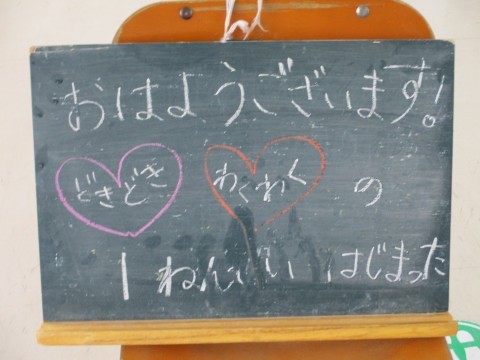 おはようございます!
どきどき わくわく の
1ねんせい はじまった